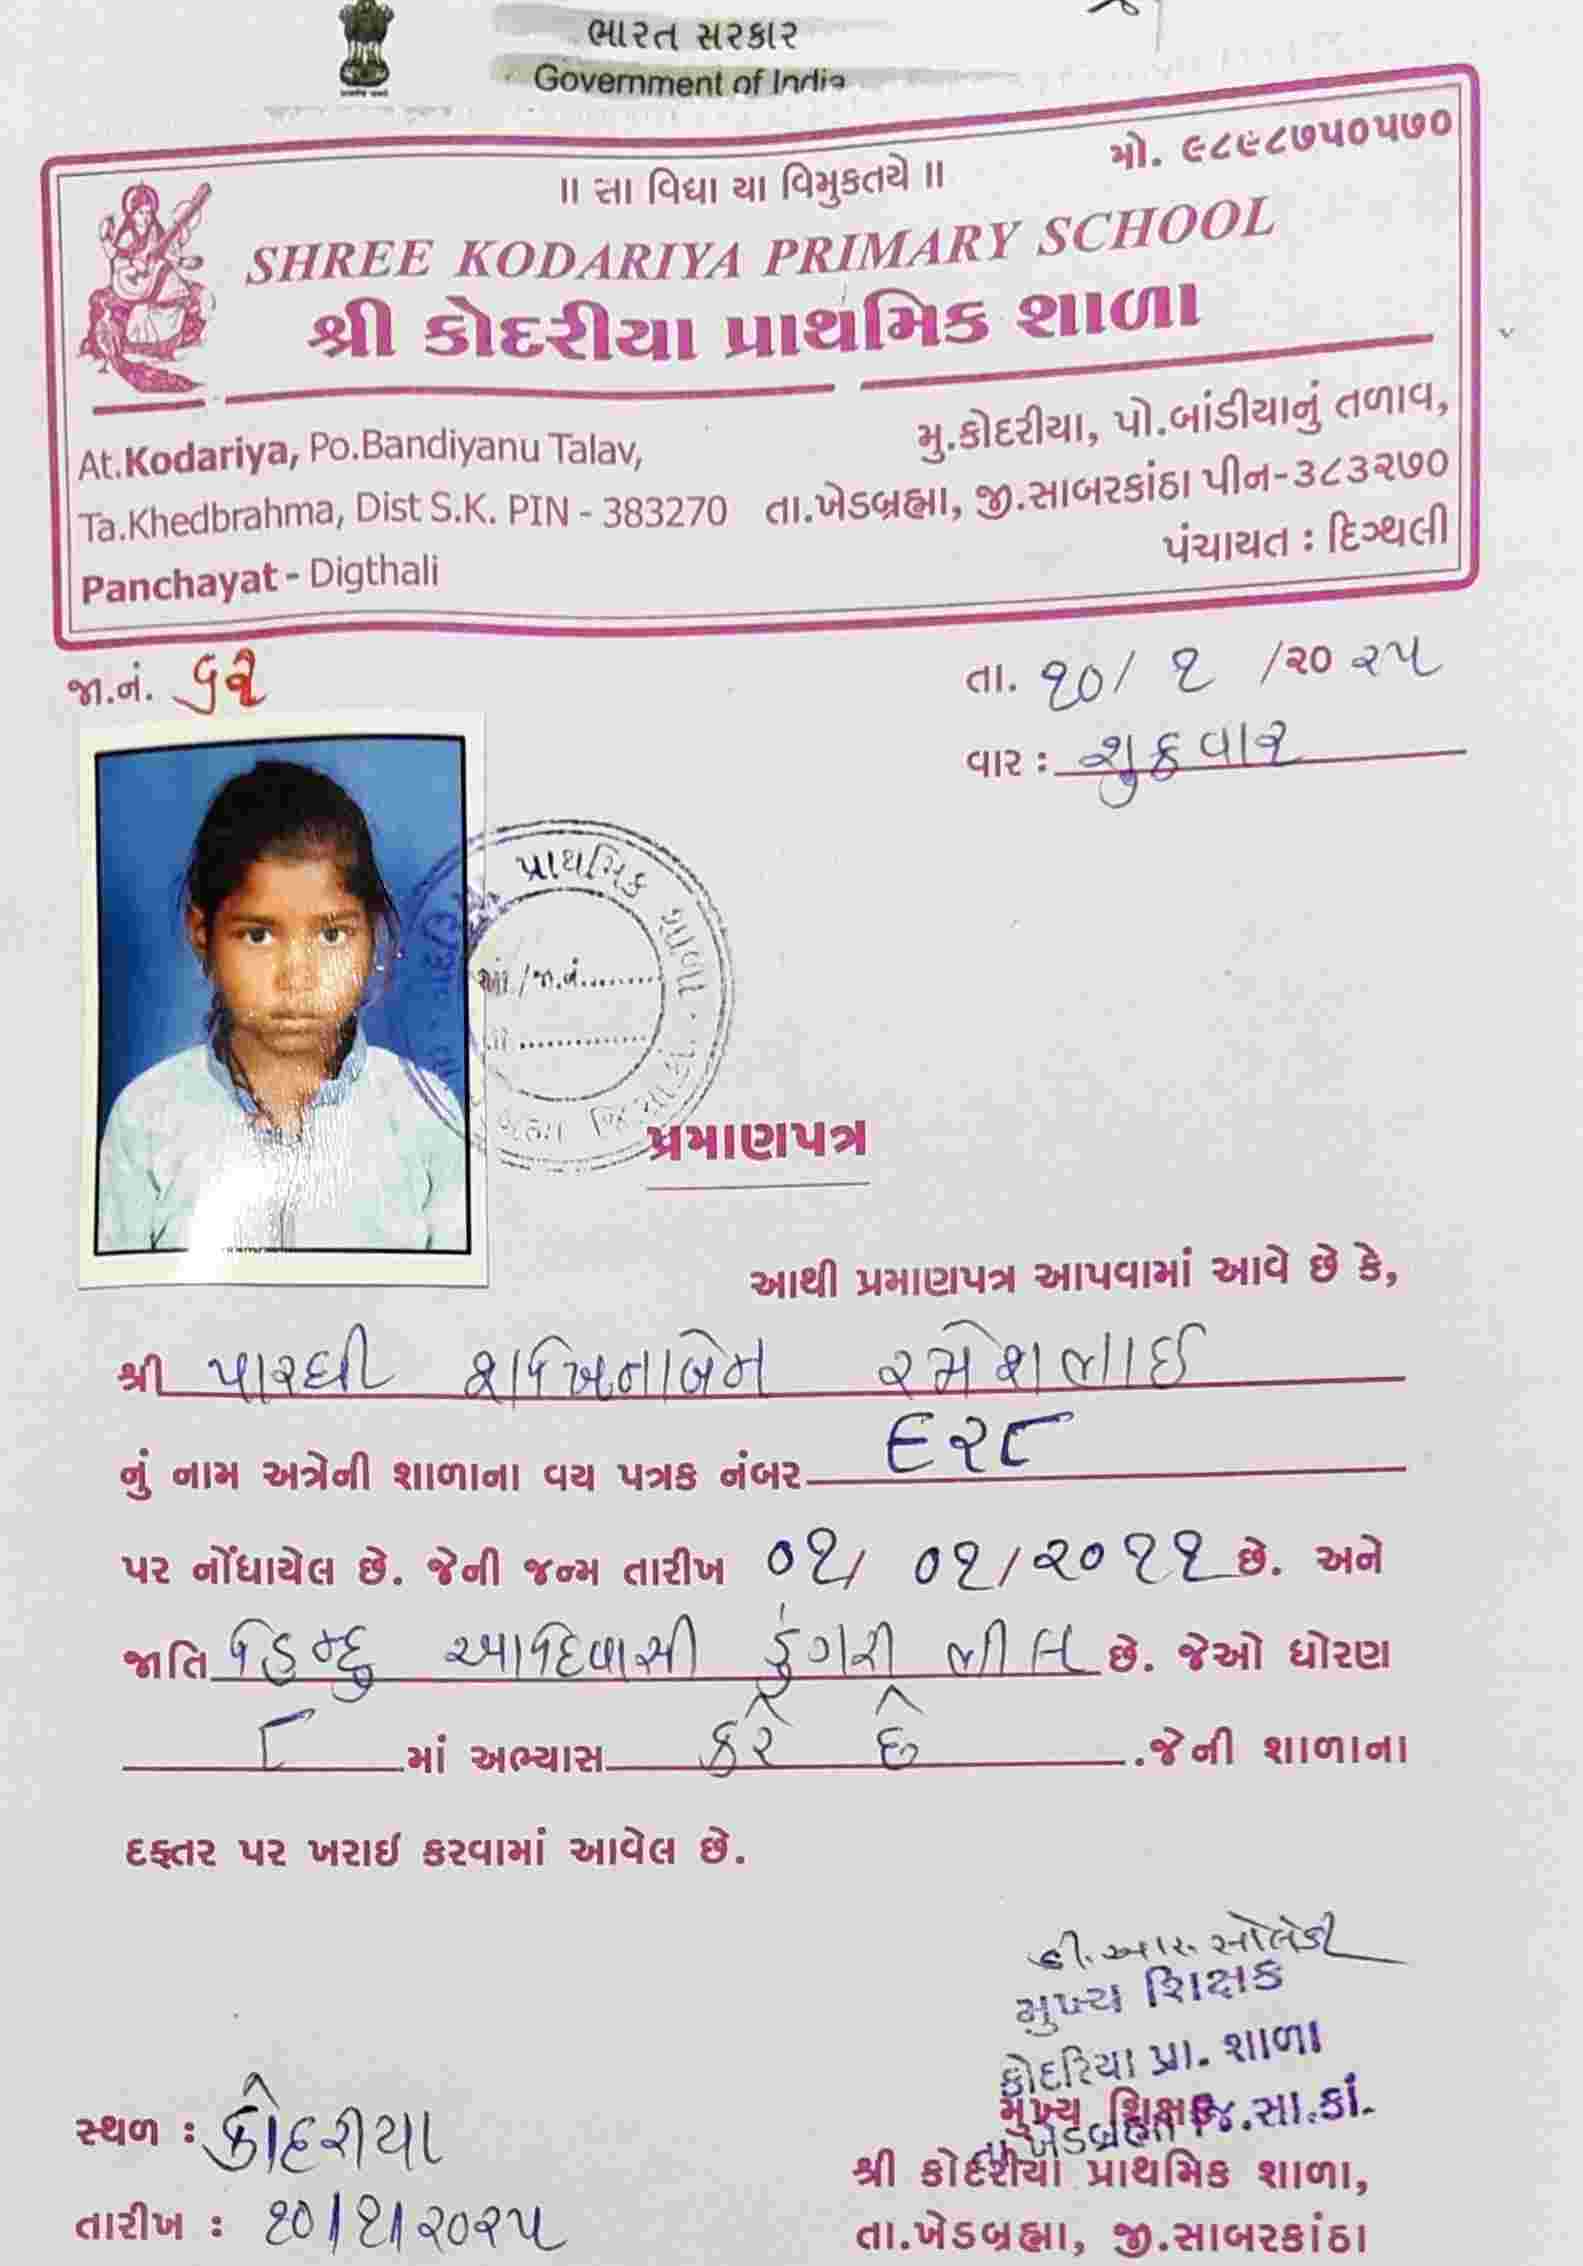 ભારત સરકાર
Government of India
મો. ૯૮૯૮૭૫૦૫૭૦
॥ સા વિદ્યા યા વિમુકતયે ॥
SHREE KODARIYA PRIMARY SCHOOL
શ્રી કોદરીયા પ્રાથમિક શાળા
At.Kodariya, Po.Bandiyanu Talav,
મુ.કોદરીયા, પો.બાંડીયાનું તળાવ,
Ta.Khedbrahma, Dist S.K. PIN - 383270
તા.ખેડબ્રહ્મા, જી.સાબરકાંઠા પીન-૩૮૩૨૭૦
Panchayat - Digthali
પંચાયત : દિગ્થલી
જા.નં.
તા. ૧૦/ ૧ /૨૦ ૨૫
વાર : શુક્રવાર
પ્રાથમિક શાળા
જા.નં.........
પ્રમાણપત્ર
આથી પ્રમાણપત્ર આપવામાં આવે છે કે,
શ્રી પારઘી રમેશભાઈ
નું નામ અત્રેની શાળાના વય પત્રક નંબર ૬૨૮
પર નોંધાયેલ છે. જેની જન્મ તારીખ ૦૧/ ૦૧/૨૦૧૧ છે. અને
જાતિ હિન્દુ આદિવાસી ડુંગરી ભીલ છે. જેઓ ધોરણ
૮ માં અભ્યાસ કરે છે .જેની શાળાના
દફ્તર પર ખરાઇ કરવામાં આવેલ છે.
આર. સોલંકી
મુખ્ય શિક્ષક
કોદરિયા પ્રા. શાળા
તા.ખેડબ્રહ્મા જિ.સા.કાં.
સ્થળ : કોદરીયા
મુખ્ય શિક્ષક
શ્રી કોદરીયા પ્રાથમિક શાળા,
તારીખ : ૧૦/૧/૨૦૨૫
તા.ખેડબ્રહ્મા, જી.સાબરકાંઠા